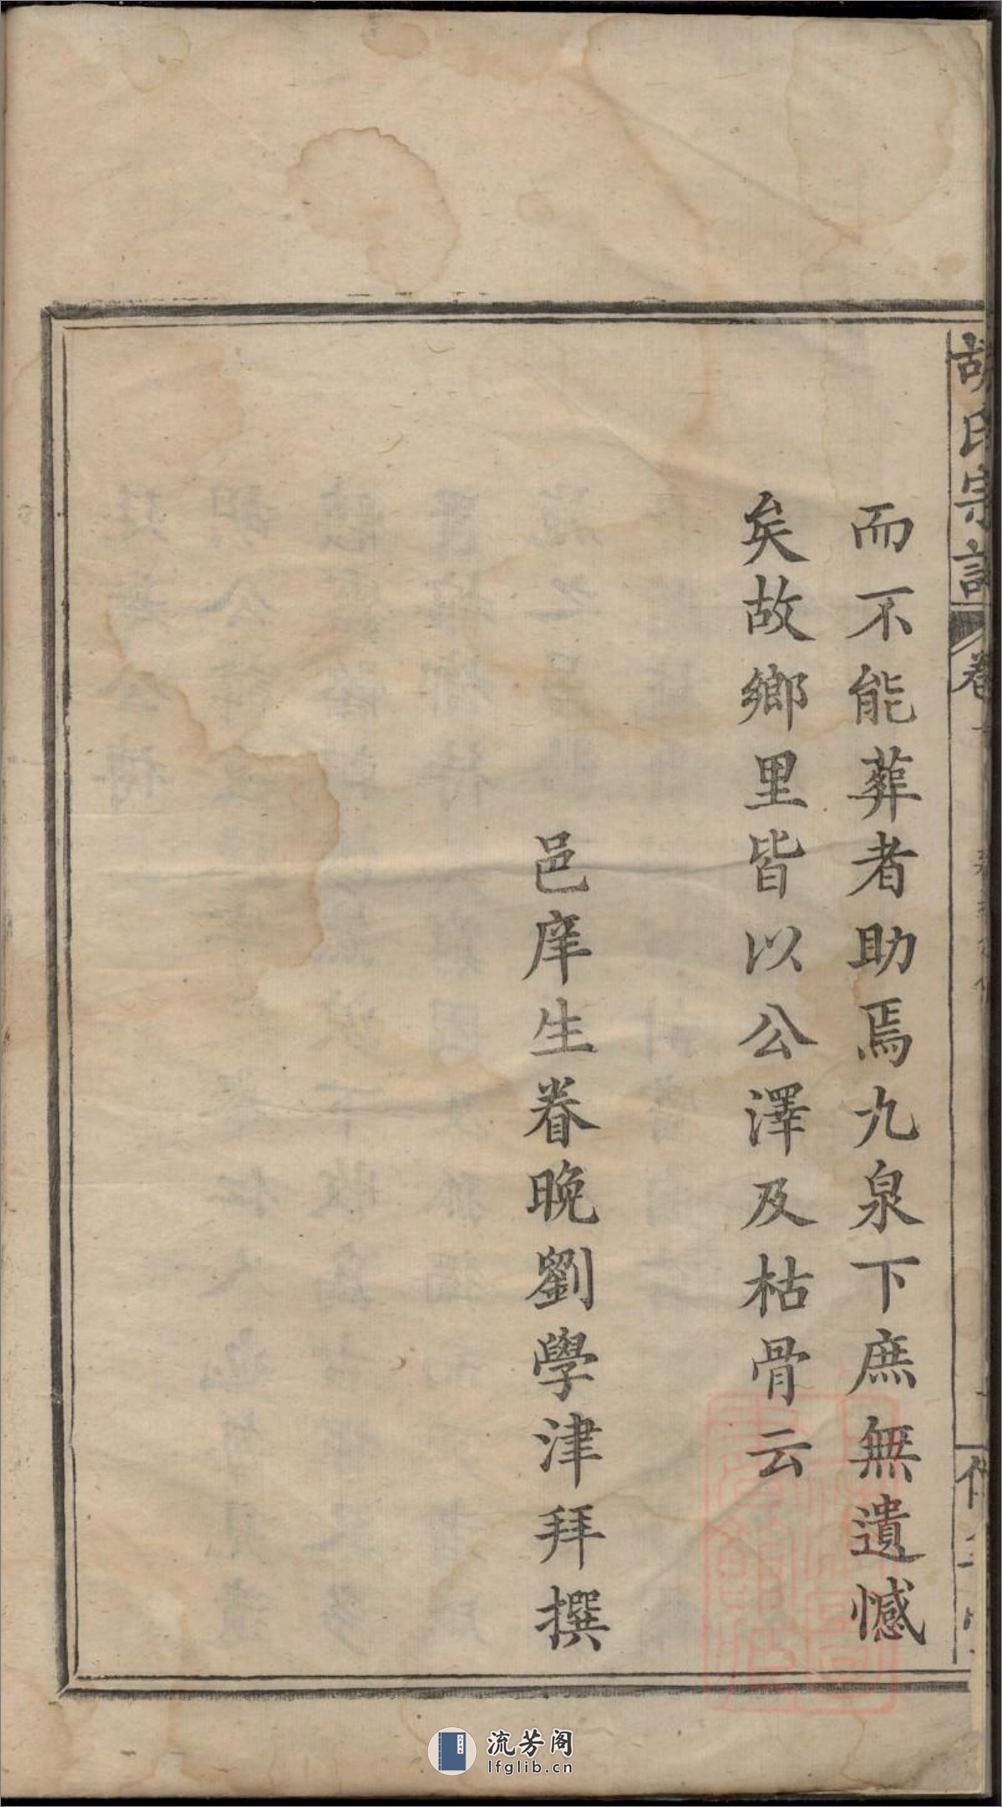 胡氏宗譜
卷
而不能葬者助焉九泉下庶無遺憾
矣故鄉里皆以公澤及枯骨云
邑庠生眷晚劉學津拜撰
流芳阁
lfglib.cn